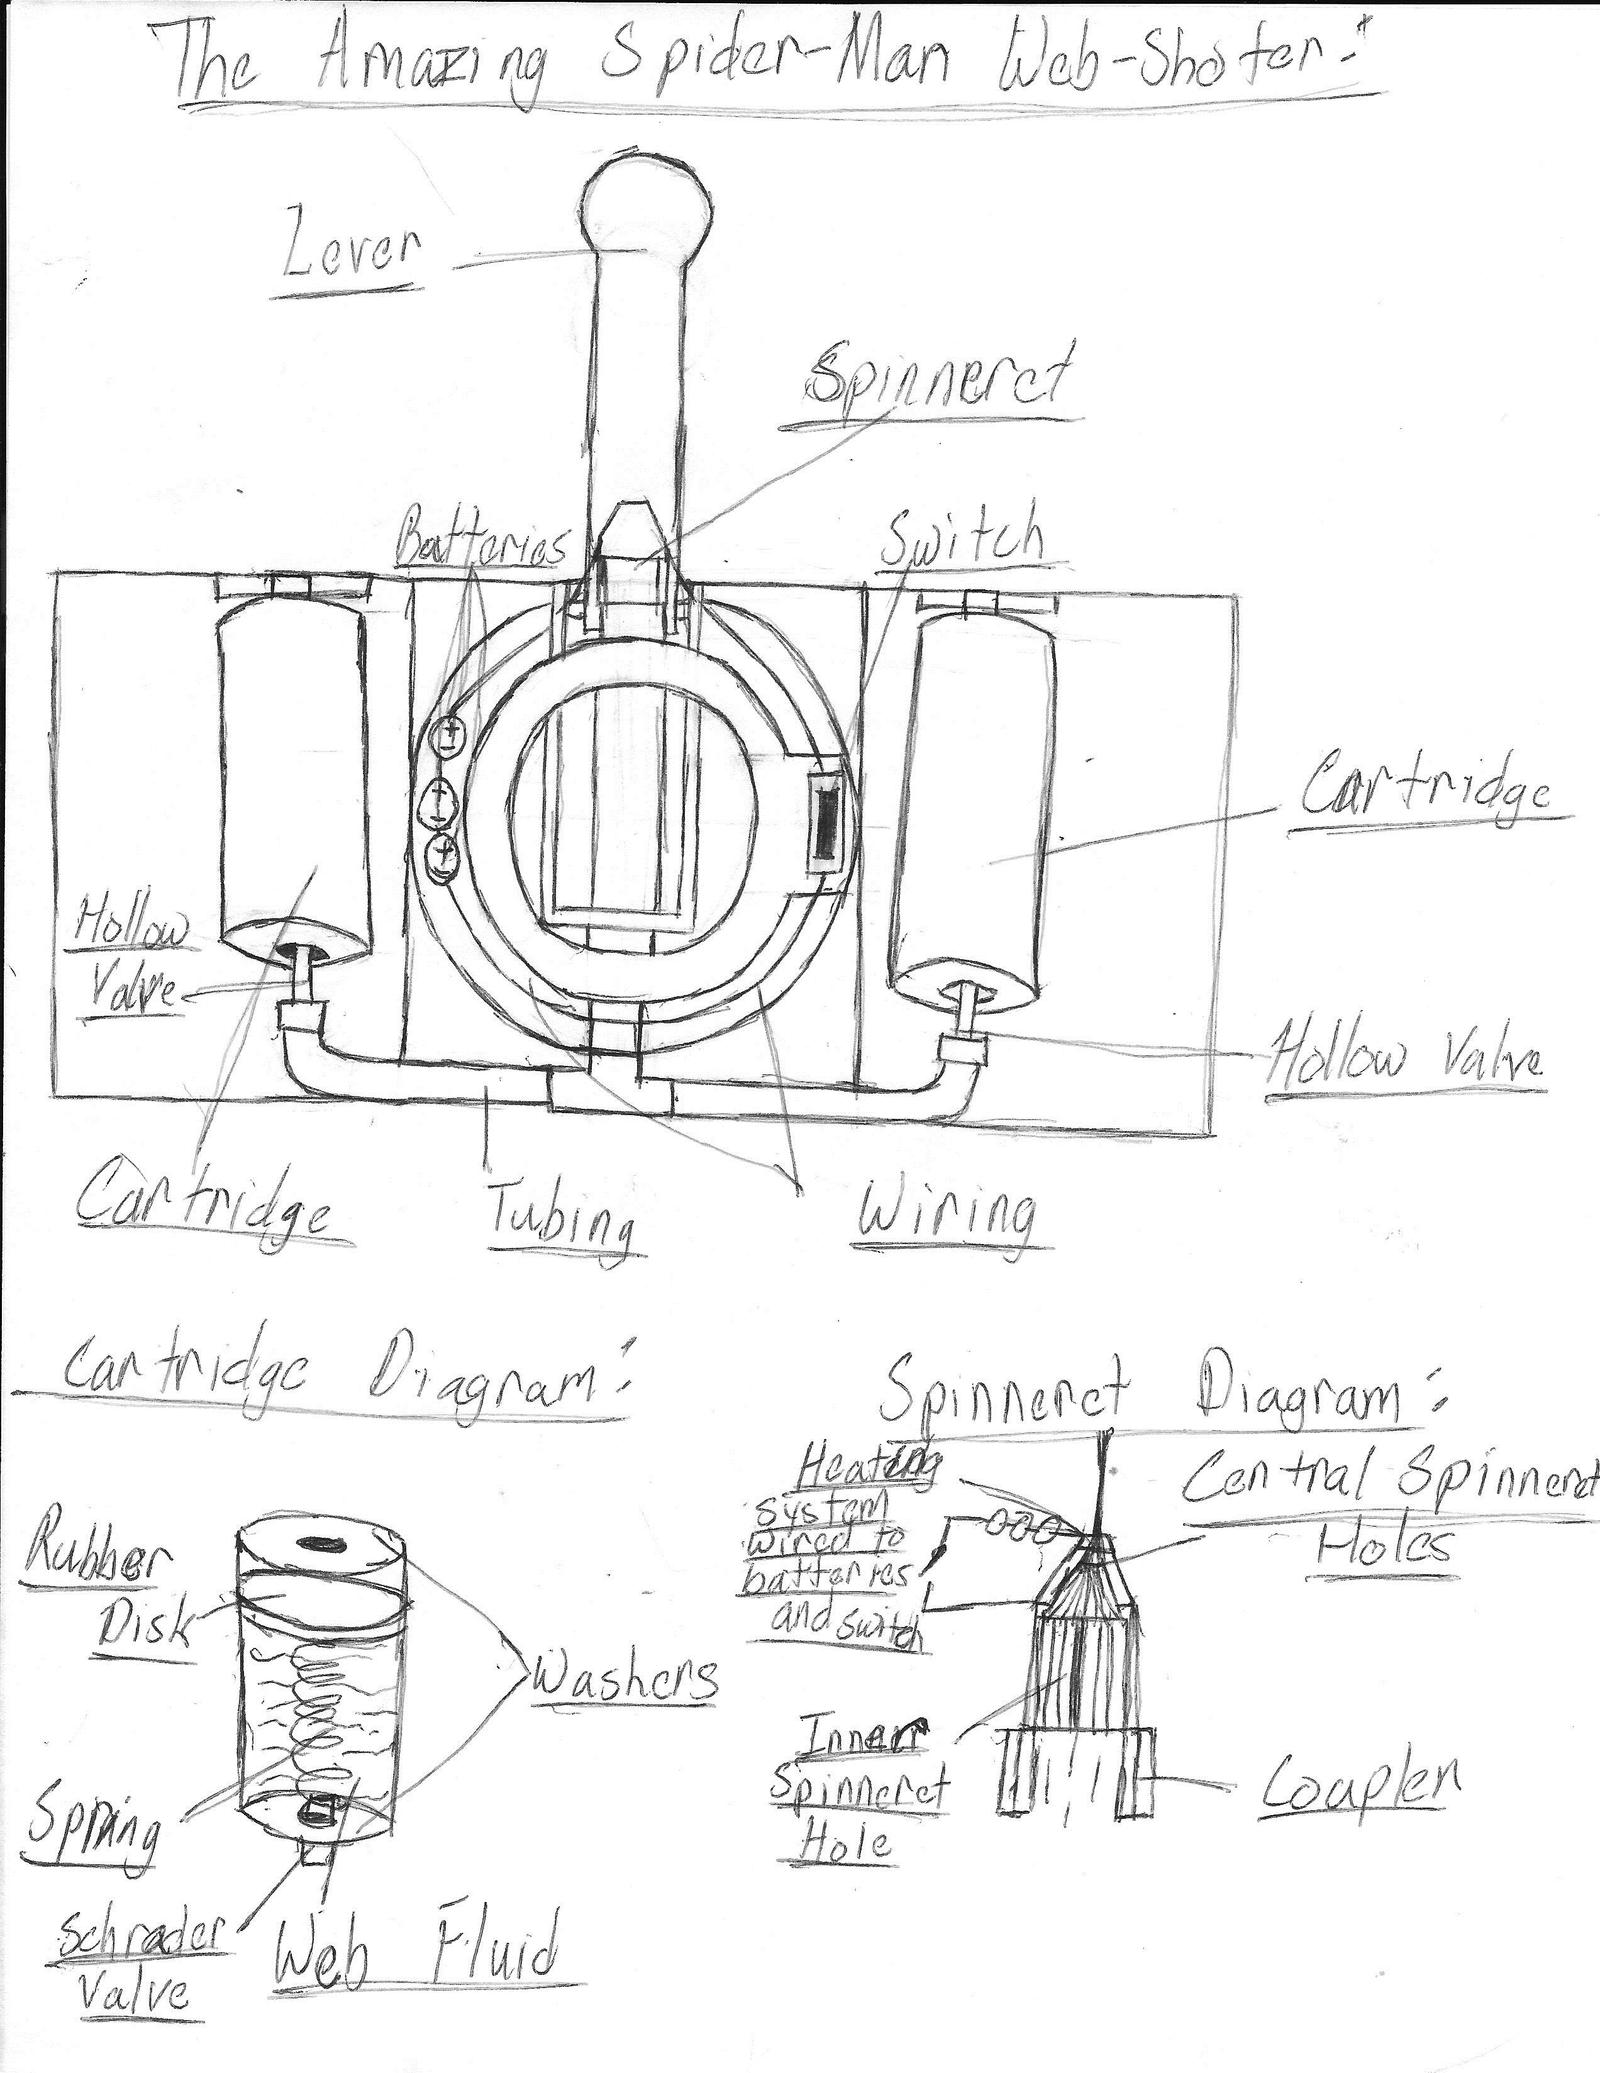 The Amazing Spider-Man Web-Shooter:
Lever
Spinneret
Batteries
Switch
Cartridge
Hollow
Valve
Hollow Valve
Cartridge
Tubing
Wiring
Cartridge Diagram:
Spinneret Diagram:
Heating
system
wired to
batteries
and switch
Central Spinneret
Holes
Rubber
Disk
Washers
Inner
Spinneret
Hole
Coupler
Spring
Schrader
Valve
Web Fluid